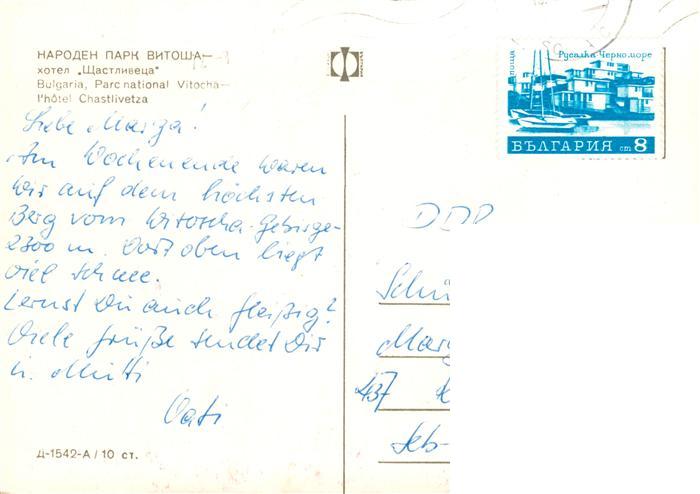 НАРОДЕН ПАРК ВИТОША—
хотел „Щастливеца"
Bulgaria, Parc national Vitocha—
l'hôtel Chastlivetza
Liebe Marga!
Am Wochenende waren
wir auf dem höchsten
Berg vom Witoscha-Gebirge-
2300 m. Dort oben liegt
viel Schnee.
Lernst Du auch fleißig?
Viele Grüße sendet Dir
u. Mutti
Vati
Д-1542-А / 10 ст.
поща
Русалка Черноморе
БЪЛГАРИЯ ст 8
DDR
Schü
Marg
437 K
Seb-